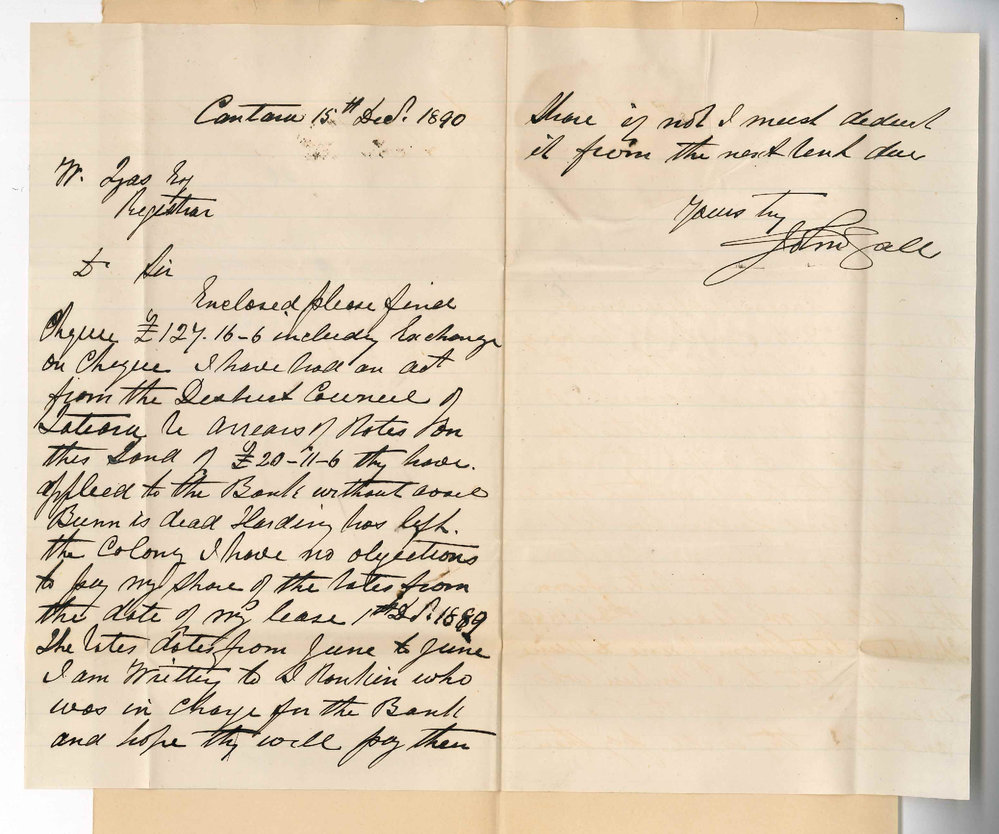 Cantara 15th Decr. 1890
W. Tyas Esq
Registrar
Dr Sir
Enclosed please find
Cheque £127-16-6 including Exchange
on Cheque I have had an act
from the District Council of
Tatiara re Arrears of Rates on
this Land of £20-11-6 thy have
applied to the Bank without avail
Bunn is dead Harding has left
the Colony I have no objections
to pay my share of the rates from
the date of my lease 1st Dr. 1889
The rates dates from June to June
I am Writting to D Rankin who
was in charge for the Bank
and hope thy will pay their
Share if not I must deduct
it from the next rent due
Yours try
John Gall